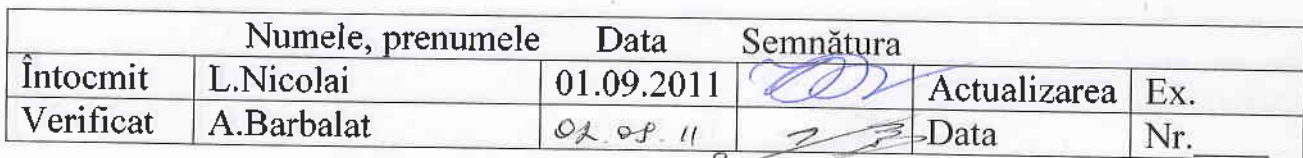 Numele, prenumele Data Semnătura
Întocmit L.Nicolai 01.09.2011 Actualizarea Ex.
Verificat A.Barbalat Data Nr.